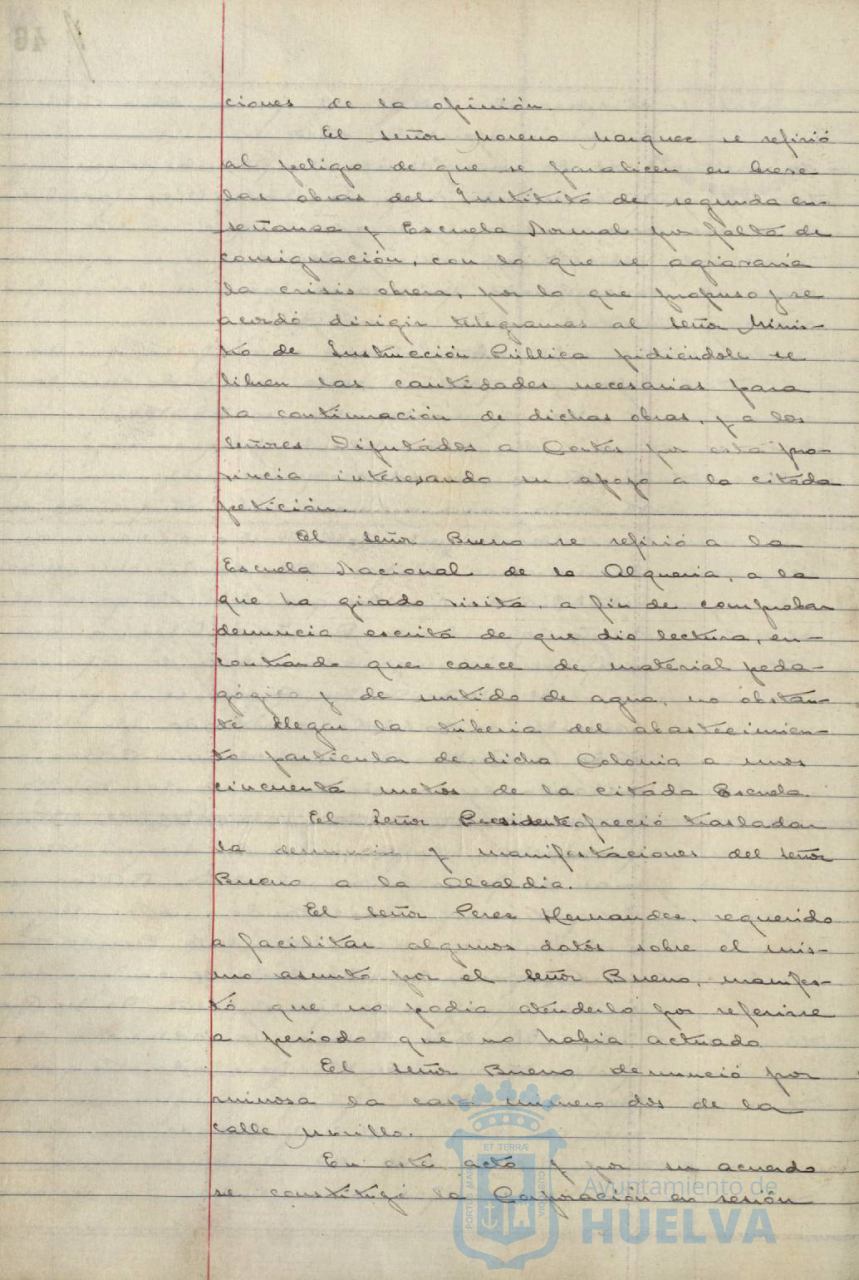 ciones de la opinión.
El señor Moreno Marquez se refirió
al peligro de que se paralicen en breve
las obras del Instituto de segunda en-
señanza y Escuela Normal por falta de
consignación, con lo que se agravaria
la crisis obrera, por lo que propuso y se
acordó dirigir telegramas al señor Minis-
tro de Instrucción Pública pidiéndole se
libren las cantidades necesarias para
la continuación de dichas obras, y a los
señores Diputados a Cortes por esta pro-
vincia interesando su apoyo a la citada
petición.
El señor Bueno se refirió a la
Escuela Nacional de la Alqueria, a la
que ha girado visita, a fin de comprobar
denuncia escrita de que dio lectura, en-
contrando que carece de material peda-
gógico y de surtido de agua, no obstan-
te llegar la tuberia del abastecimien-
to particular de dicha Colonia a unos
cincuenta metros de la citada Escuela.
El Señor Presidente ofreció trasladar
la denuncia y manifestaciones del señor
Bueno a la Alcaldia.
El señor Perez Hernandez, requerido
a facilitar algunos datos sobre el mis-
mo asunto por el señor Bueno, manifes-
tó que no podia atenderlo por referirse
a periodo que no habia actuado
El señor Bueno denunció por
ruinosa la casa número dos de la
calle Murillo.
En este acto y por su acuerdo
se constituye la Corporación en sesión
ET TERRÆ
PORTUS MARIS
CUSTODIA
Ayuntamiento de
HUELVA
46